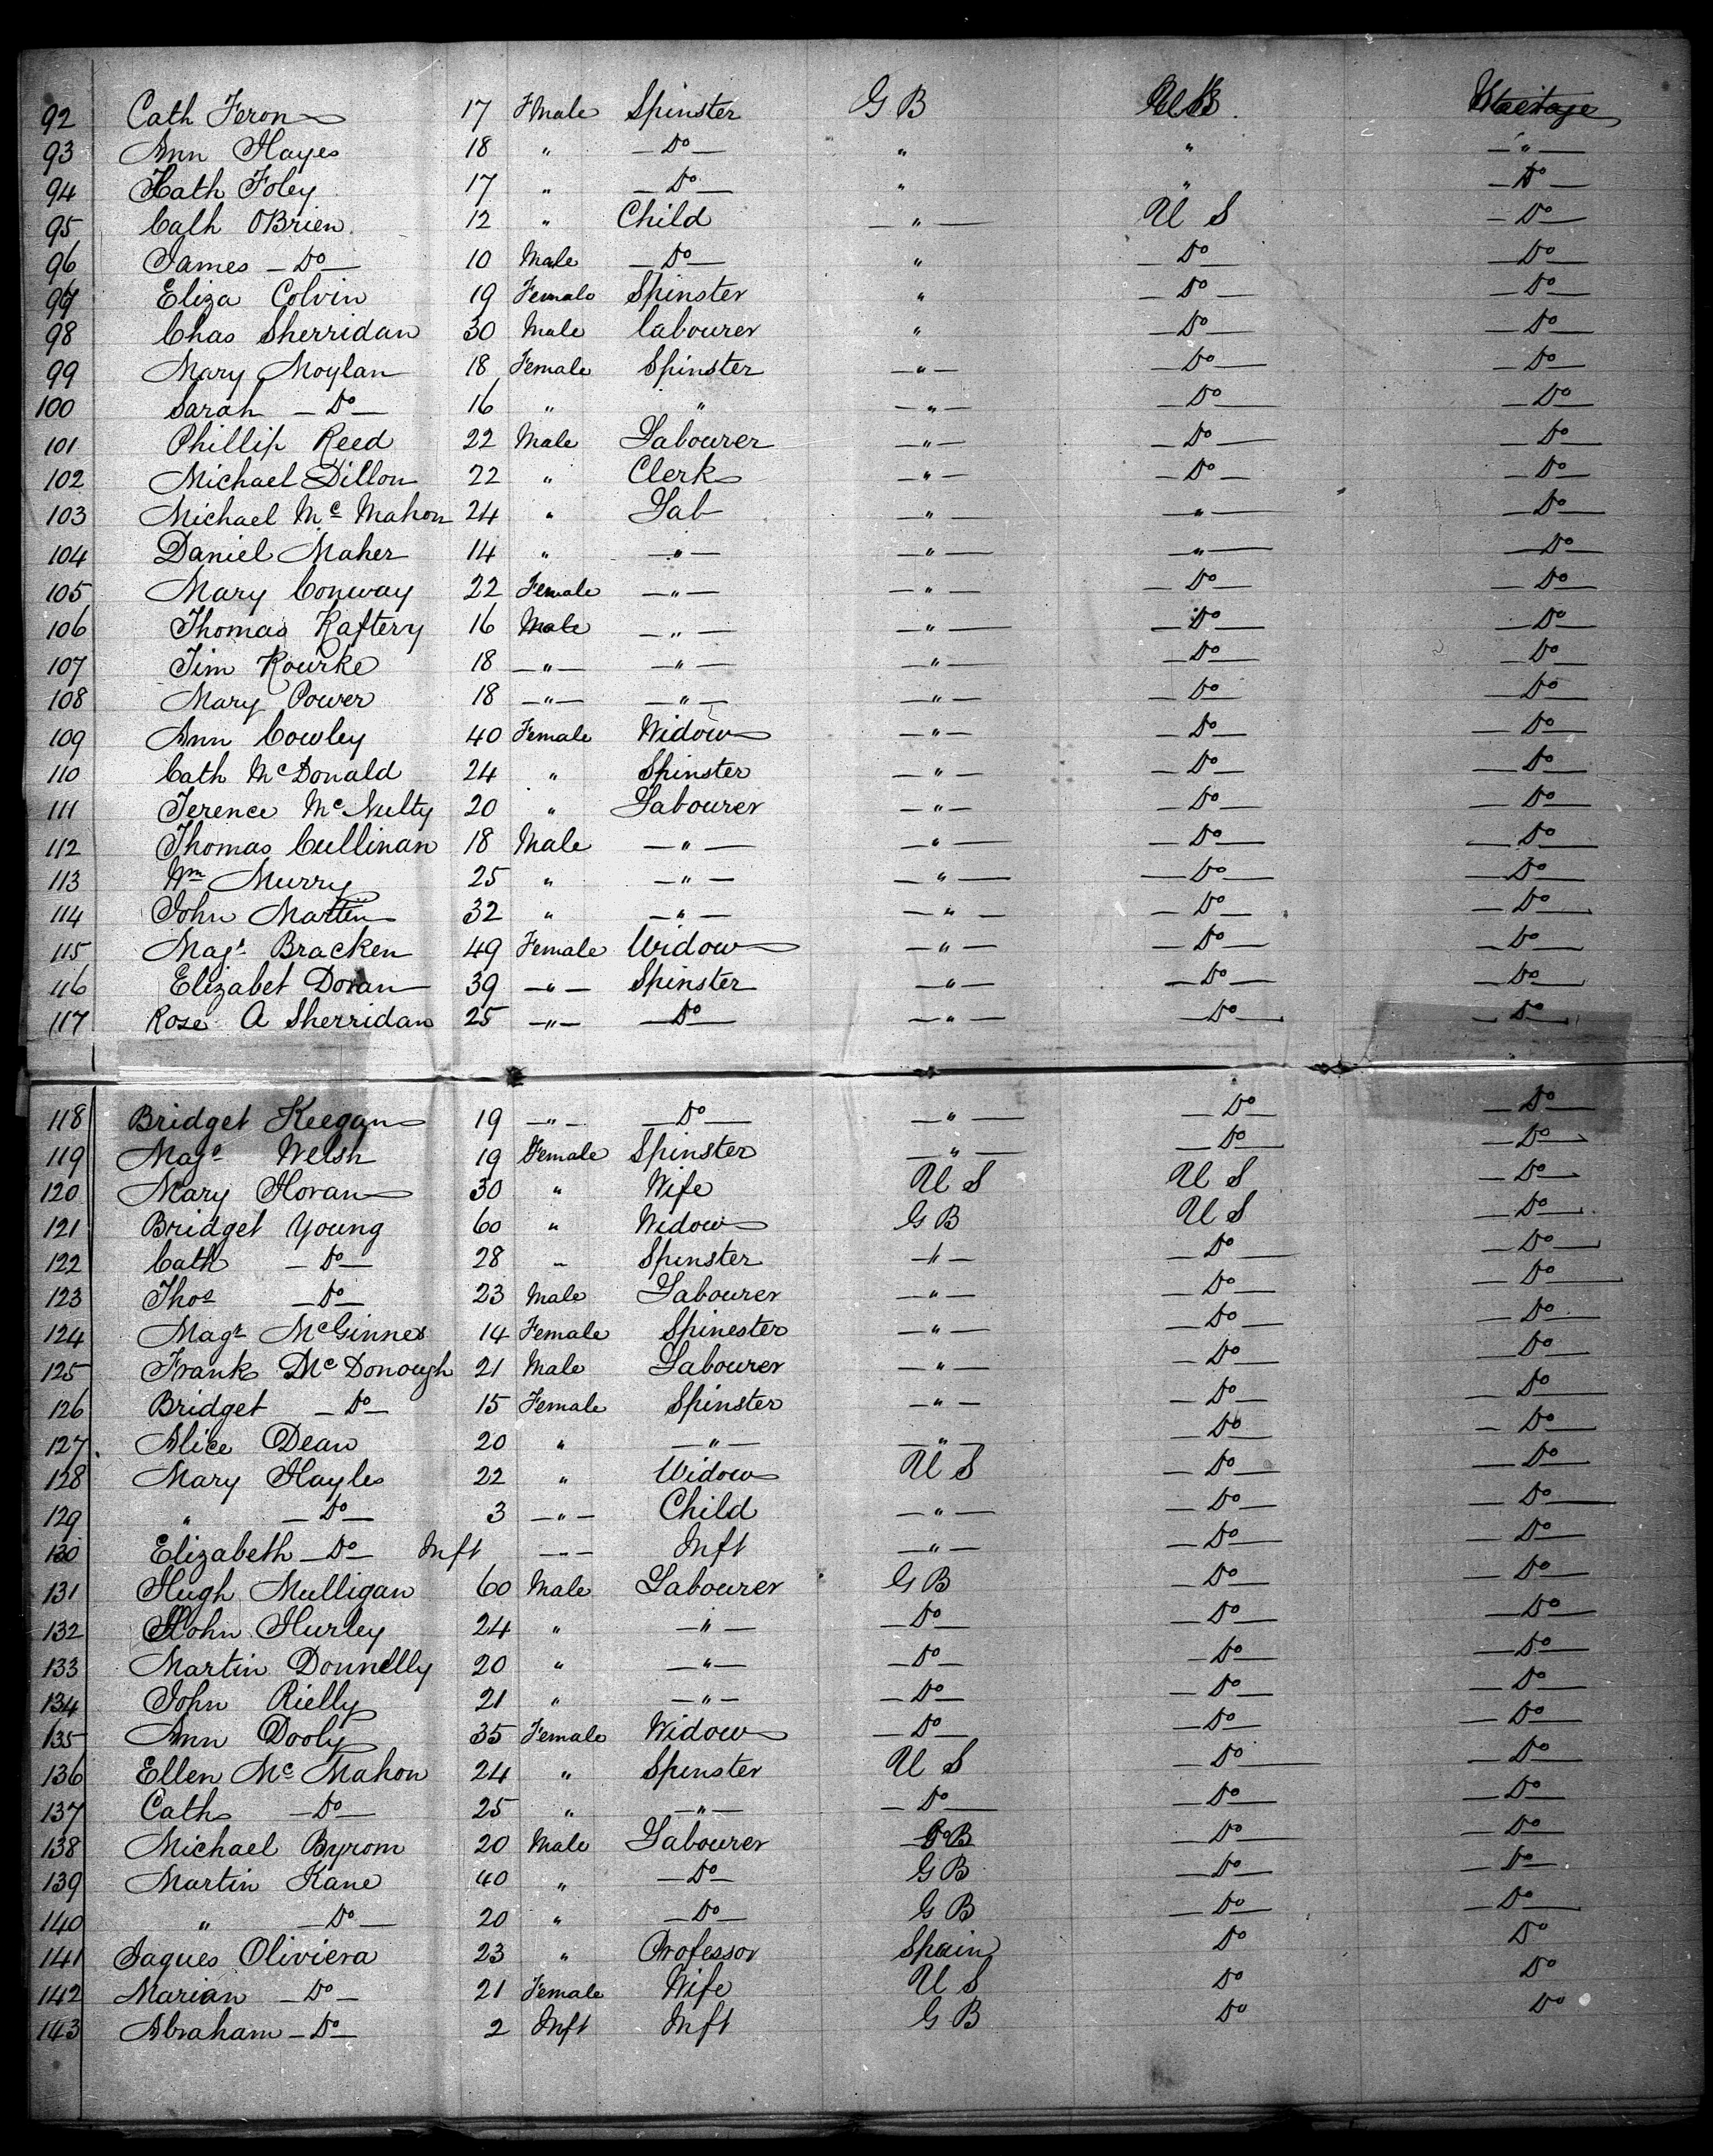 92 Cath Feron 17 Fmale Spinster G B
93 Ann Hayes 18 " — Do — " " — " —
94 Kath Foley 17 " — Do — " " — Do —
95 Cath OBrien 12 " Child — " — U S — Do —
96 James — Do — 10 Male — Do — " — Do — — Do —
97 Eliza Colvin 19 Female Spinster " — Do — — Do —
98 Chas Sherridan 30 Male labourer " — Do — — Do —
99 Mary Moylan 18 Female Spinster — " — — Do — — Do —
100 Sarah — Do — 16 " " — " — — Do — — Do —
101 Phillip Reed 22 Male Labourer — " — — Do — — Do —
102 Michael Dillon 22 " Clerk — " — — Do — — Do —
103 Michael Mc Mahon 24 " Lab — " — — " — — Do —
104 Daniel Maher 14 " — " — — " — — " — — Do —
105 Mary Conway 22 Female — " — — " — — Do — — Do —
106 Thomas Raftery 16 Male — " — — " — — Do — — Do —
107 Tim Rourke 18 — " — — " — — " — — Do — — Do —
108 Mary Power 18 — " — — " — — " — — Do — — Do —
109 Ann Cowley 40 Female Widow — " — — Do — — Do —
110 Cath McDonald 24 " Spinster — " — — Do — — Do —
111 Terence Mc Nulty 20 " Labourer — " — — Do — — Do —
112 Thomas Cullinan 18 Male — " — — " — — Do — — Do —
113 Wm Murry 25 " — " — — " — — Do — — Do —
114 John Martin 32 " — " — — " — — Do — — Do —
115 Magt Bracken 49 Female Widow — " — — Do — — Do —
116 Elizabet Doran 39 — " — Spinster — " — — Do — — Do —
117 Rose A Sherridan 25 — " — — Do — — " — — Do — — Do —
118 Bridget Keegan 19 — " — — Do — — " — — Do — — Do —
119 Magt Welsh 19 Female Spinster — " — — Do — — Do —
120 Mary Horan 30 " Wife U S U S — Do —
121 Bridget Young 60 " Widow G B U S — Do —
122 Cath — Do — 28 " Spinster — " — — Do — — Do —
123 Thos — Do — 23 Male Labourer — " — — Do — — Do —
124 Magt McGinnes 14 Female Spinester — " — — Do — — Do —
125 Frank Mc Donough 21 Male Labourer — " — — Do — — Do —
126 Bridget — Do — 15 Female Spinster — " — — Do — — Do —
127 Alice Dean 20 " — " — — " — — Do — — Do —
128 Mary Hayles 22 " Widow U S — Do — — Do —
129 " — Do — 3 — " — Child — " — — Do — — Do —
130 Elizabeth — Do — Inft — " — Inft — " — — Do — — Do —
131 Hugh Mulligan 60 Male Labourer G B — Do — — Do —
132 John Hurley 24 " — " — — Do — — Do — — Do —
133 Martin Donnelly 20 " — " — — Do — — Do — — Do —
134 John Rielly 21 " — " — — Do — — Do — — Do —
135 Ann Dooly 35 Female Widow — Do — — Do — — Do —
136 Ellen Mc Mahon 24 " Spinster U S — Do — — Do —
137 Cath — Do — 25 " — " — — Do — — Do — — Do —
138 Michael Byrom 20 Male Labourer G B — Do — — Do —
139 Martin Kane 40 " — Do — G B — Do — — Do —
140 " — Do — 20 " — Do — G B — Do — — Do —
141 Jaques Oliviera 23 " Professor Spain Do Do
142 Marian — Do — 21 Female Wife U S Do Do
143 Abraham — Do — 2 Inft Inft G B Do Do